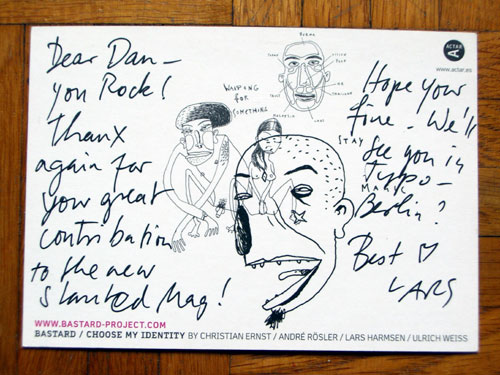 Dear Dan –
you Rock!
Thanx
again for
your great
contribution
to the new
Slanted Mag!
WAITING
FOR
SOMETHING
STAY
MAGIC
ACTAR
A
www.actar.es
Hope your
fine – We'll
see you in
Typo –
Berlin?
Best ♡
LARS
WWW.BASTARD-PROJECT.COM
BASTARD / CHOOSE MY IDENTITY BY CHRISTIAN ERNST / ANDRÉ RÖSLER / LARS HARMSEN / ULRICH WEISS